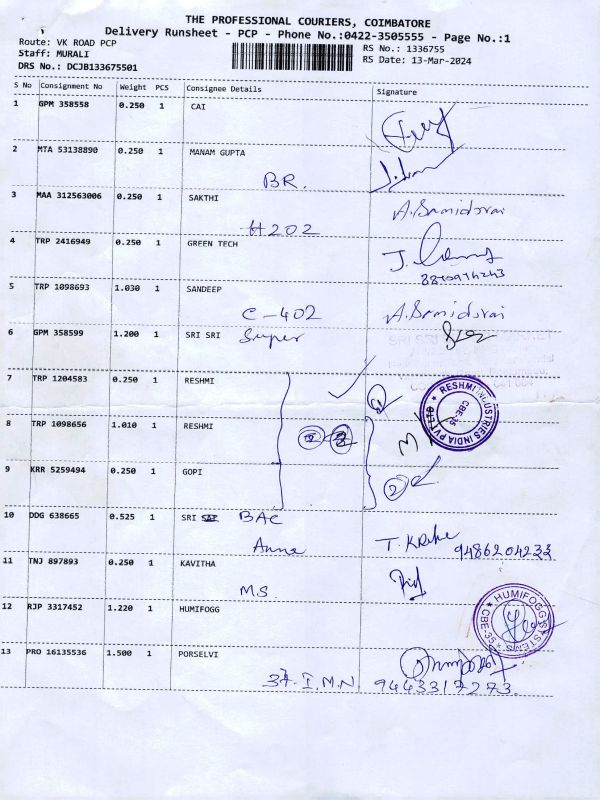 THE PROFESSIONAL COURIERS, COIMBATORE
Delivery Runsheet - PCP - Phone No.:0422-3505555 - Page No.:1
Route: VK ROAD PCP RS No.: 1336755
Staff: MURALI RS Date: 13-Mar-2024
DRS No.: DCJB133675501
S No Consignment No Weight PCS Consignee Details Signature
1 GPM 358558 0.250 1 CAI
2 MTA 53138890 0.250 1 MANAM GUPTA
BR.
3 MAA 312563006 0.250 1 SAKTHI A. Samidurai
H202
4 TRP 2416949 0.250 1 GREEN TECH
5 TRP 1098693 1.030 1 SANDEEP
C-402 A. Samidurai
6 GPM 358599 1.200 1 SRI SRI Super
7 TRP 1204583 0.250 1 RESHMI
RESHMI INDUSTRIES INDIA PVT LTD
CBE-35
8 TRP 1098656 1.010 1 RESHMI
9 KRR 5259494 0.250 1 GOPI
2
10 DDG 638665 0.525 1 SRI SAI BAC
Anna 9486204233
11 TNJ 897893 0.250 1 KAVITHA
MS.
12 RJP 3317452 1.220 1 HUMIFOGG
HUMIFOGG SYSTEMS
CBE-35
13 PRO 16135536 1.500 1 PORSELVI
37. I.M.N. 9443317273.